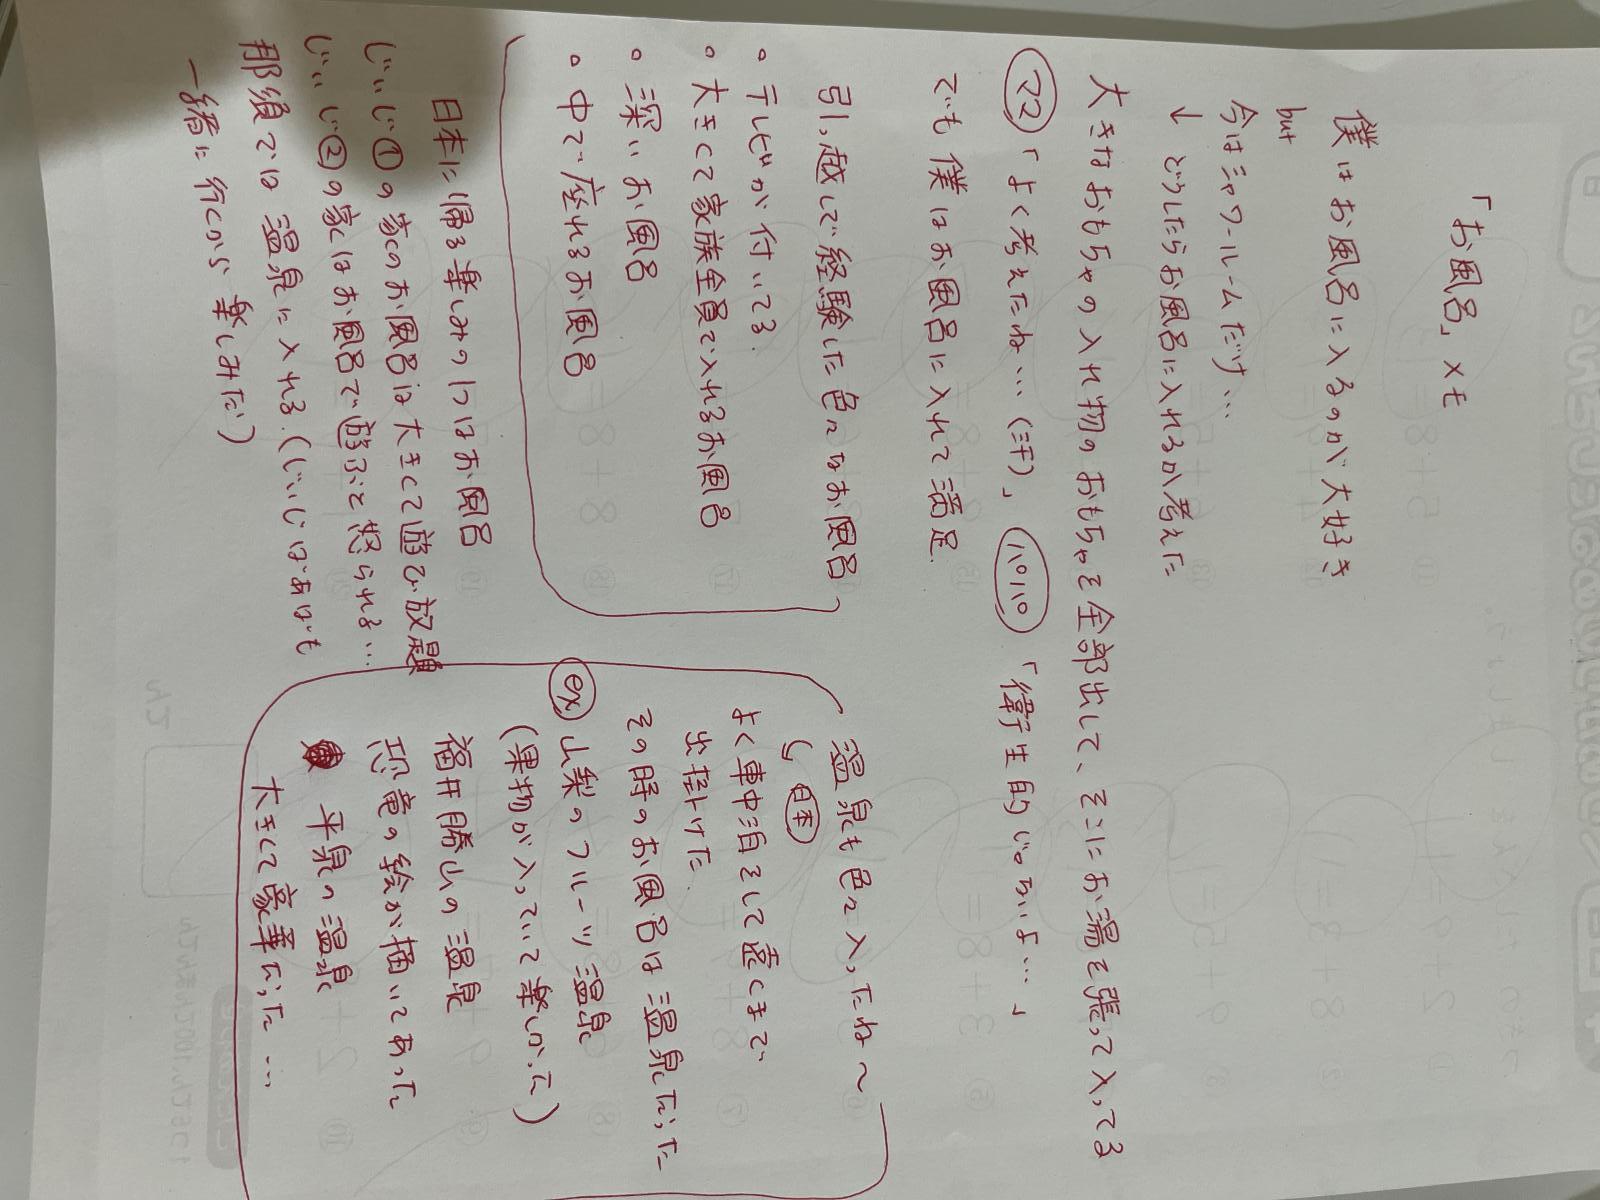 「お風呂」メモ
僕はお風呂に入るのが大好き
but
今はシャワールームだけ…
↓ どうしたらお風呂に入れるか考えた
大きなおもちゃの入れ物のおもちゃを全部出して、そこにお湯を張って入ってる
ママ「よく考えたね…(汗)」 パパ「衛生的じゃないよ…」
でも僕はお風呂に入れて満足
引っ越しで経験した色々なお風呂
・テレビが付いてる
・大きくて家族全員で入れるお風呂
・深いお風呂
・中で座れるお風呂
日本に帰る楽しみの1つはお風呂
じぃじ①の家のお風呂は大きくて遊び放題
じぃじ②の家はお風呂で遊ぶと怒られる…
那須では温泉に入れる(じぃじばあばも
一緒に行くから楽しみだ)
温泉も色々入ったね〜
日本
よく車中泊をして遠くまで
出掛けた
その時のお風呂は温泉だった
ex 山梨のフルーツ温泉
(果物が入っていて楽しかった)
福井勝山の温泉
恐竜の絵が描いてあった
平泉の温泉
大きくて豪華だった…